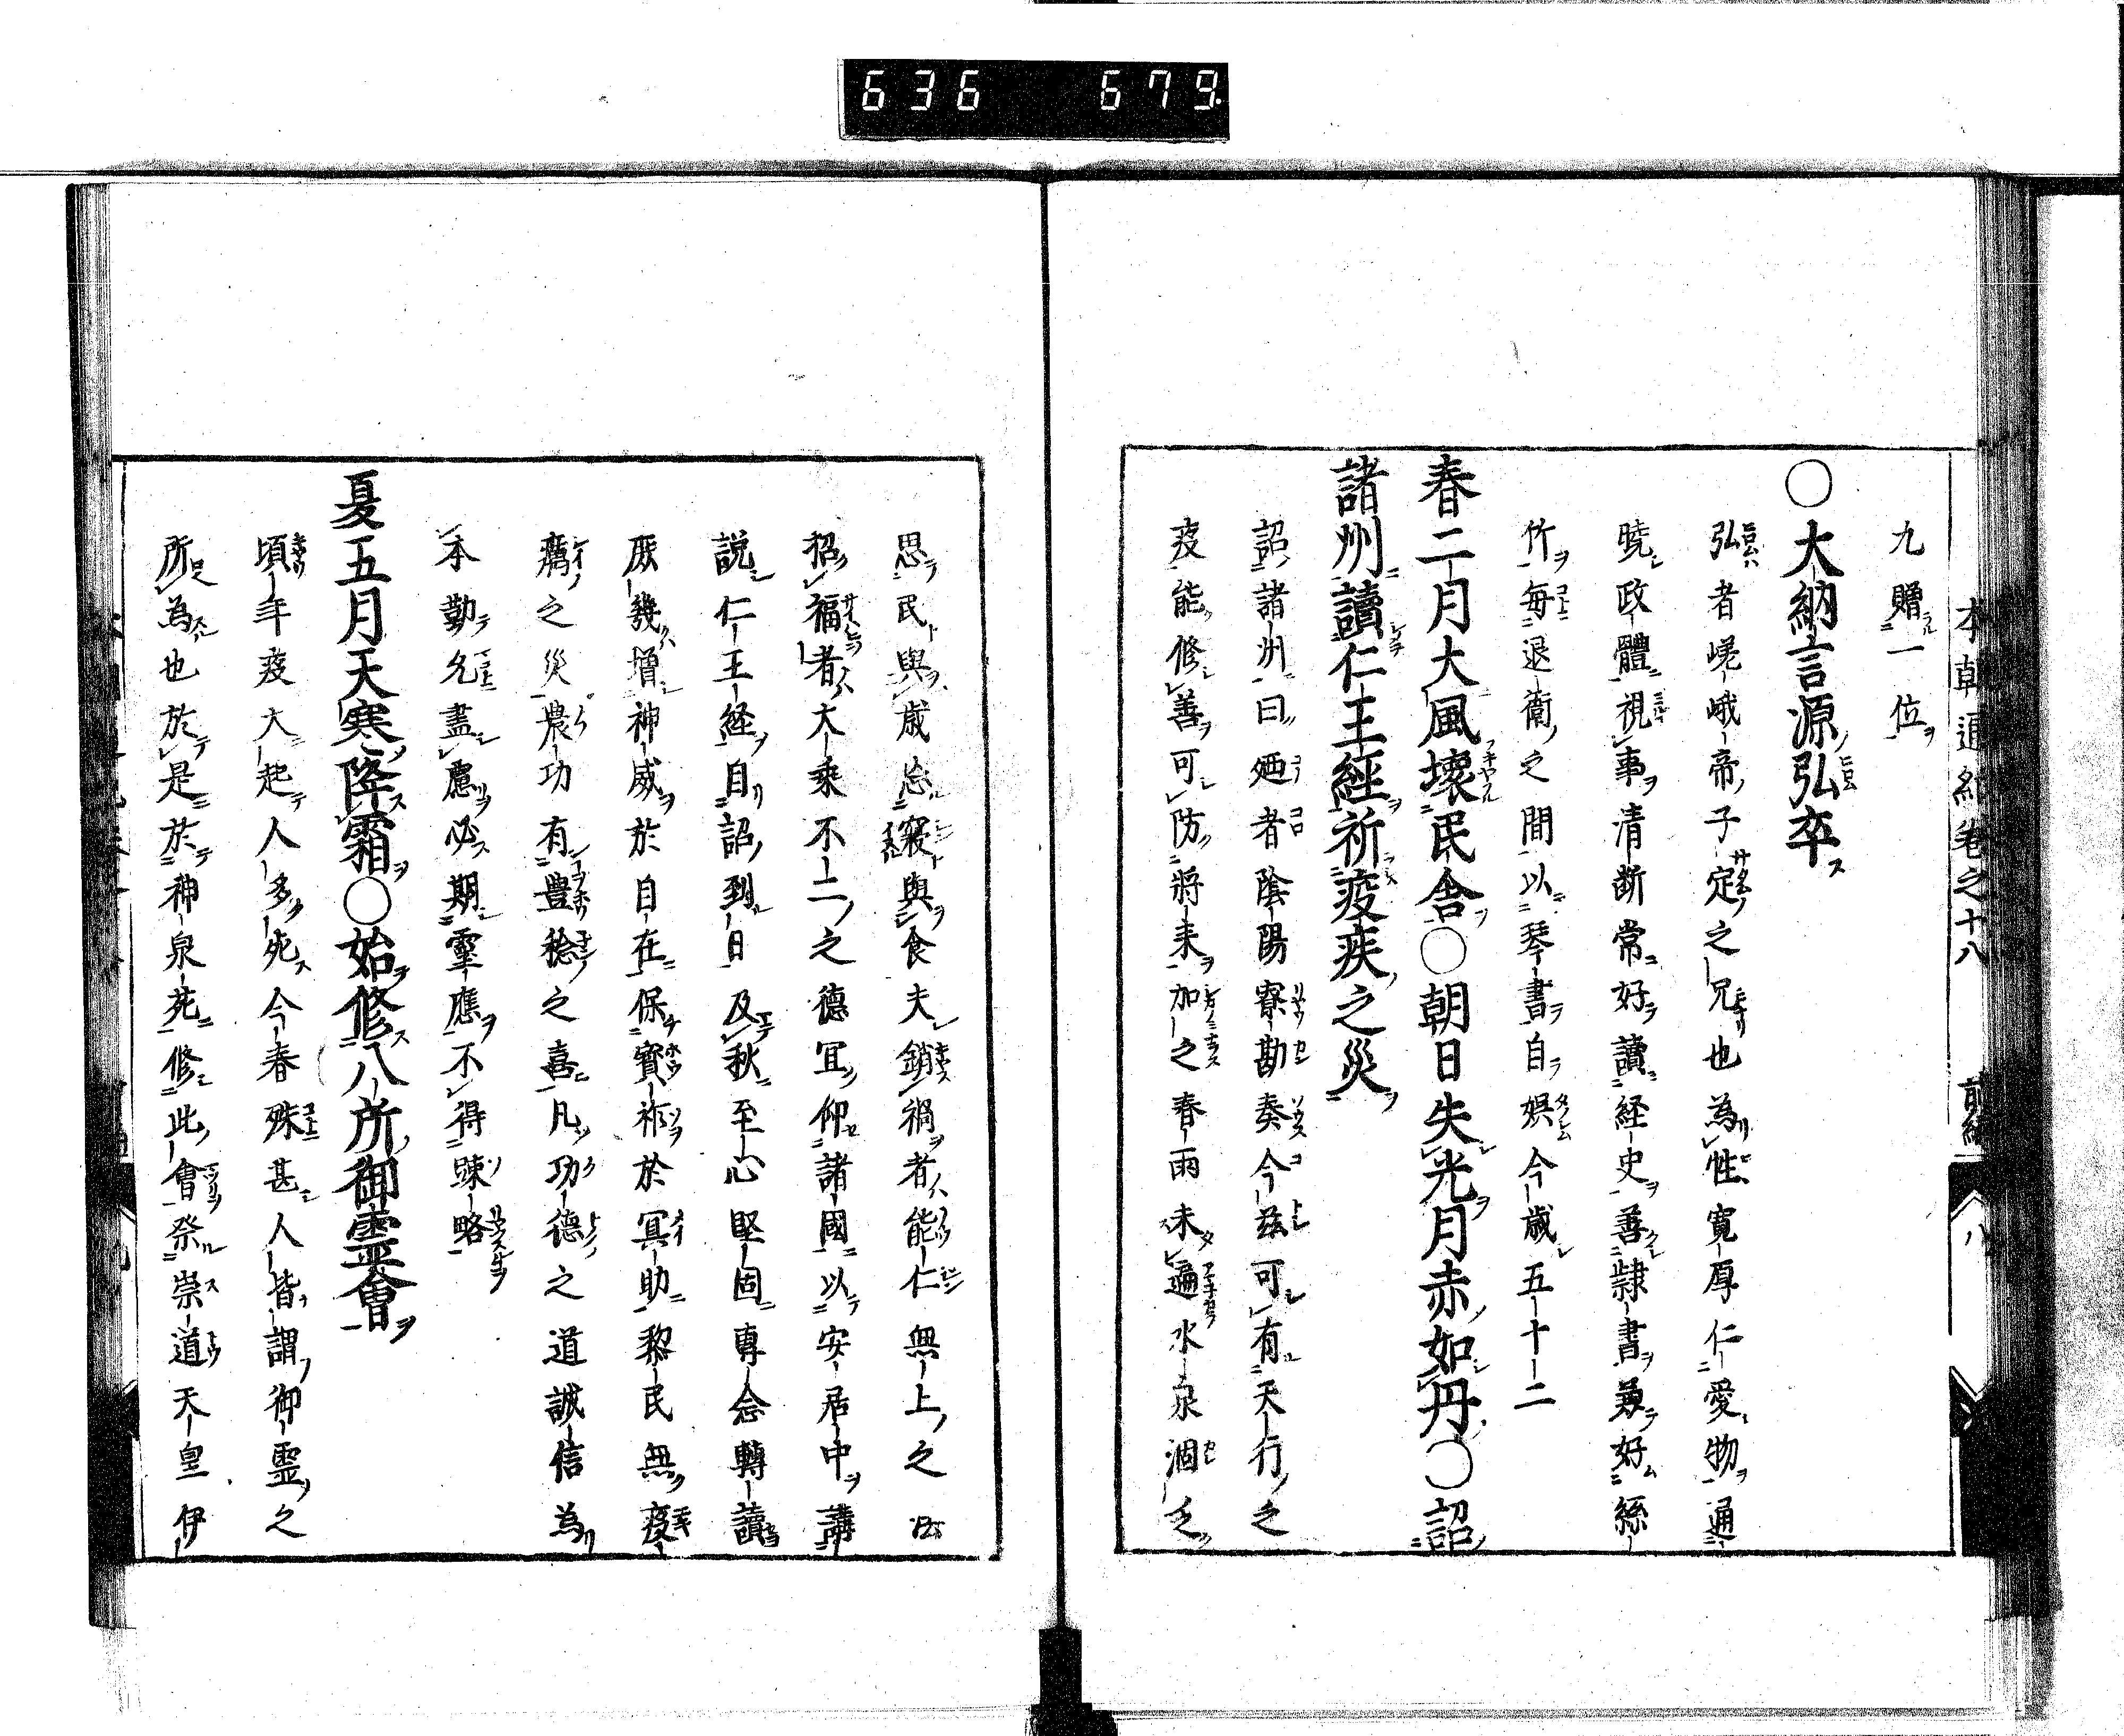 636 679
本朝通紀卷之十八 前編 八
九贈一位
○大納言源弘卒
弘者嵯峨帝子定之兄也為性寛厚仁愛物通
曉政體視事清断常好讀経史善隷書兼好絲
竹毎退衛之間以琴書自娯今歳五十二
春二月大風壊民舎○朝日失光月赤如丹○詔
諸州讀仁王經祈疫疾之災
詔諸州曰廼者陰陽寮勘奏今茲可有天行之
疫能修善可防將来加之春雨未遍水泉涸乏
思民與歳忘寝與食夫銷禍者能仁無上之
招福者大乗不二之德冝仰諸國以安居中講
説仁王経自詔到日及秋至心堅固專念轉讀
厥幾増神威於自在保寳祚於冥助黎民無疫
癘之災農功有豊稔之喜凡功德之道誠信為
本勤乞盡慮必期靈應不得踈略
夏五月天寒降霜○始修八所御霊會
頃年疫大起人多死今春殊甚人皆謂御霊之
所為也於是於神泉苑修此會祭崇道天皇伊